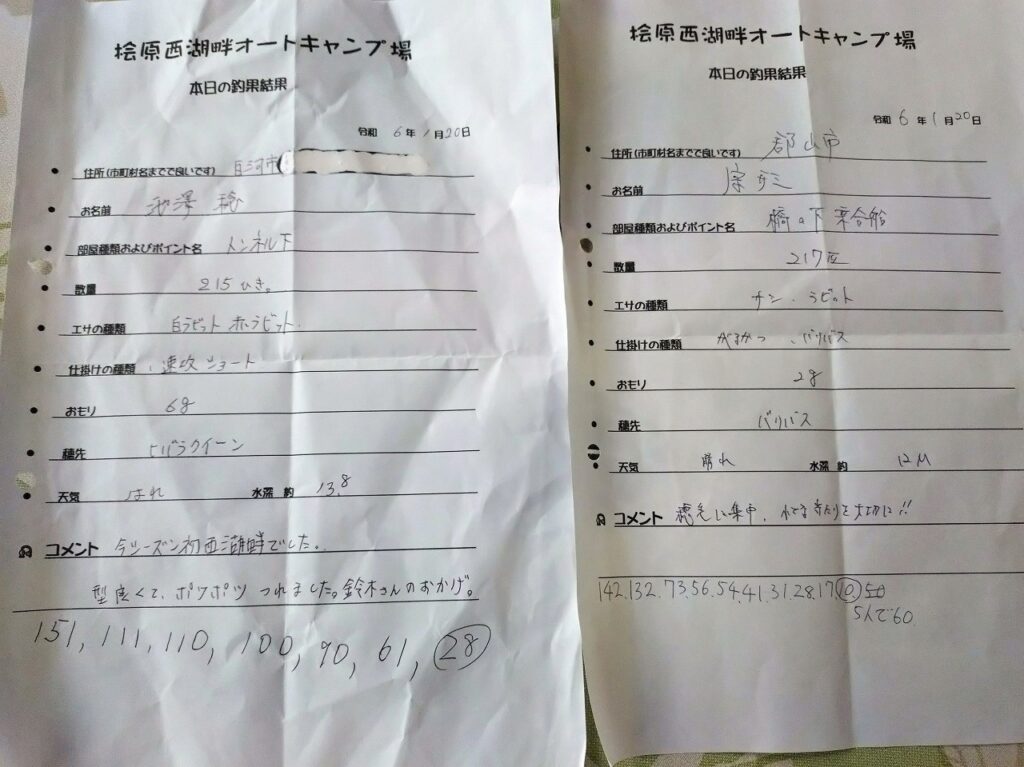 桧原西湖畔オートキャンプ場
本日の釣果結果
令和 6年 1月 20日
住所(市町村名までで良いです) 白河市
お名前 池澤 稔
部屋種類およびポイント名 トンネル下
数量 215ひき。
エサの種類 白ラビット 赤ラビット.
仕掛けの種類 速攻 ショート
おもり 6g
穂先 ヒバラクイーン
天気 はれ 水深 約 13.8
コメント 今シーズン初西湖畔でした。
型良くて、ポツポツ つれました。鈴木さんのおかげ。
151, 111, 110, 100, 90, 61, 28
桧原西湖畔オートキャンプ場
本日の釣果結果
令和 6年 1月 20日
住所(市町村名までで良いです) 郡山市
お名前
部屋種類およびポイント名 橋の下 乗合船
数量 217匹
エサの種類 サシ、ラビット
仕掛けの種類 がまかつ、バリバス
おもり 2g
穂先 バリバス
天気 晴れ 水深 約 12M
コメント 穂先に集中、 を大切に!!
142.132.73.56.54.41.31.28.17.10.50
5人で60